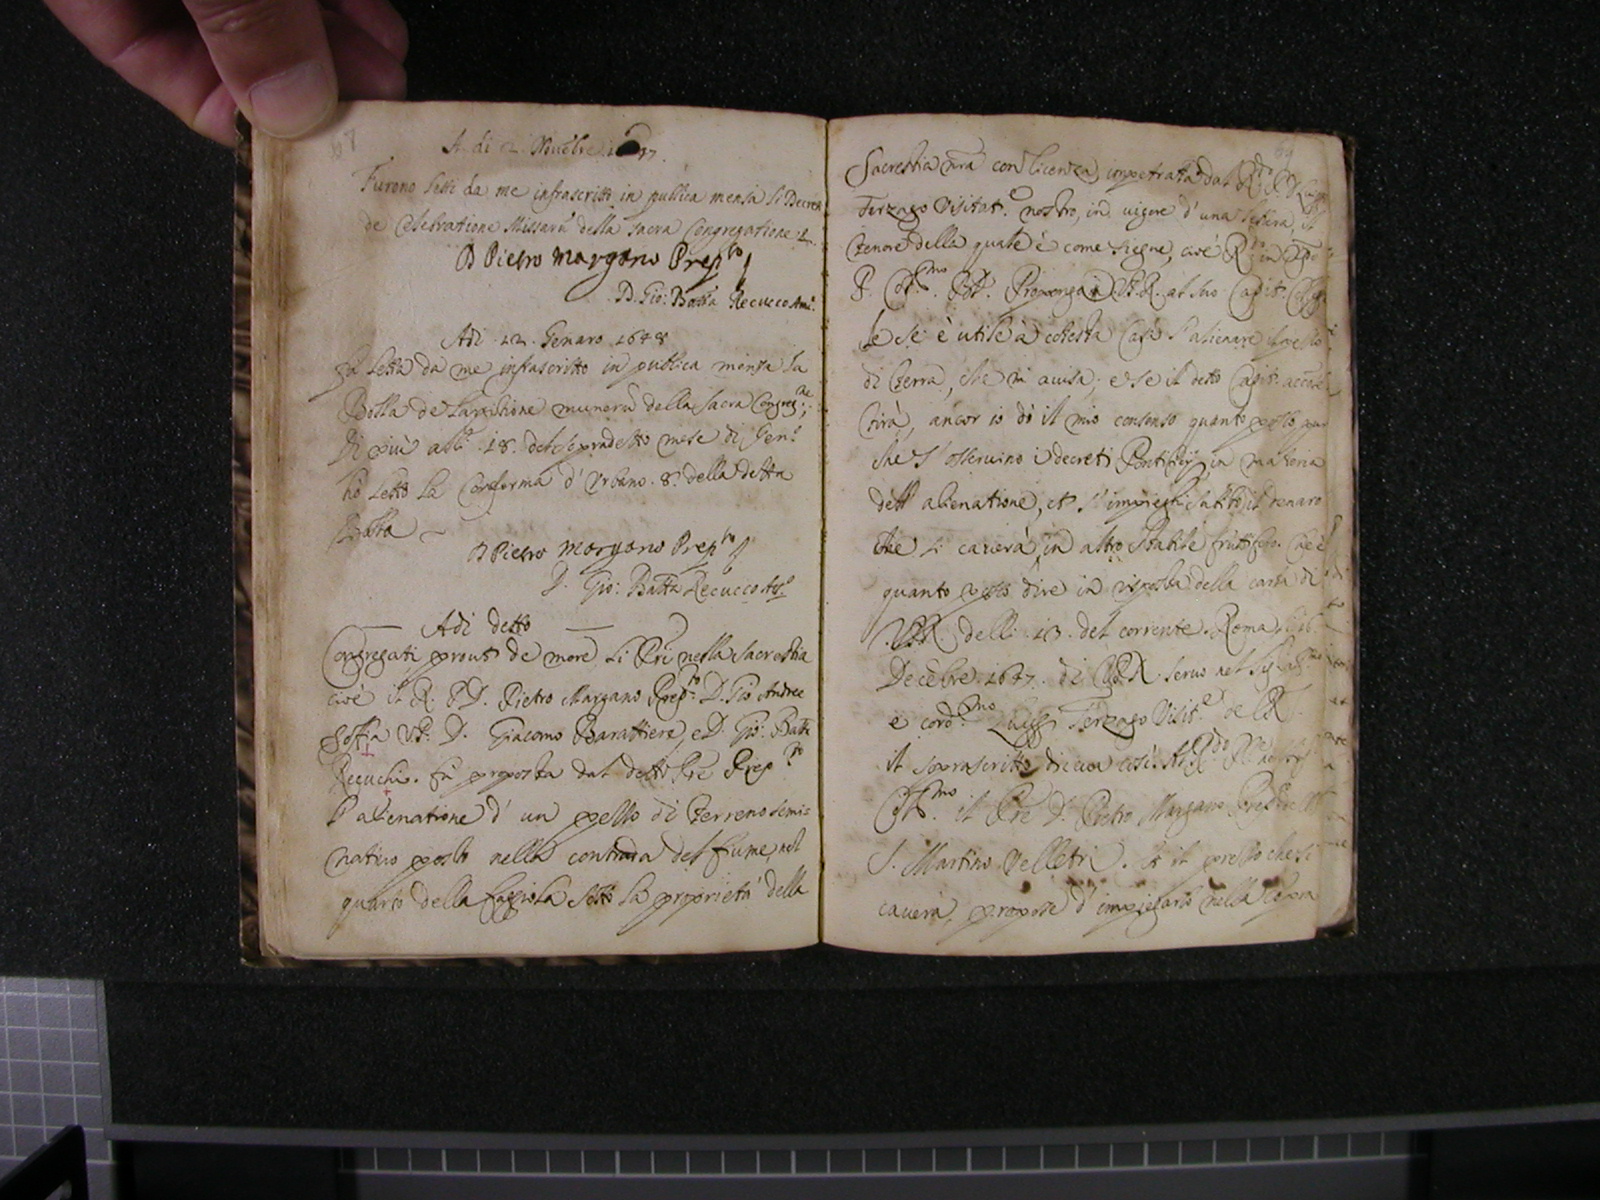 A di 2 Nouẽbre 1647.
Furono letti da me infrascritto in publica mensa li Decreti
de Celebratione Missarũ della sacra Congregatione
D Pietro Margano Prepto
D. Gio: Batta Recucco Att.
Adi 12 Genaro 1648
Fu letta da me infrascritto in publica mensa la
Bolla de largitione munerũ della sacra Congregne;
Di più alli 18. del sopradetto mese di Genro
hò letto la Conferma d'Urbano 8º della detta
Bolla
D Pietro Margano Prepto
D. Gio: Batta Recucco Atto
Adi detto
Congregati prout de more li PPri nella Sacrestia
cioè il R. P. D. Pietro Margano Prepto D. Gio Andrea
Soffia VP. D. Giacomo Barattieri, e D. Gio: Batta
Recuchi. fù proposta dal detto Pre Prepto
l'alienatione d'un pezzo di terreno semi=
natiuo posto nella contrada del fiume, nel
quarto della faggiola sotto la proprietà della
Sacrestia nrã con licenza impetrata dal R.do P. D. Luigi
Terzago Visitat.e nostro, in vigore d'una lettera, il
tenore della quale è come siegue, cioè R.do in Xpo
P. Oss.mo Pax. Proponga V.R. al suo Capit.
le se è utile à cotesta Casa l'alienare il pezzo
di terra, che mi auisa; e se il detto Capit.
tirà, ancor io dò il mio consenso quanto posso pur
che s'osseruino i decreti Pontificij in materia
dell'alienatione, et s'impieghi subito il denaro
che si cauerà in altro stabile fruttifero. Che è
quanto posso dire in risposta della carta di
V.R. delli 13. del corrente. Roma
Decẽbre 1647. di V.R. seruo nel Sig.
e cord.mo Luigi Terzago Visit.e de CR
il soprascritto diceua così. Al R.do Pre
Oss.mo il Pre D. Pietro Margano Prep
S. Martino Velletri. Et il prezzo che si
cauerà, propose d'impiegarlo nella compra